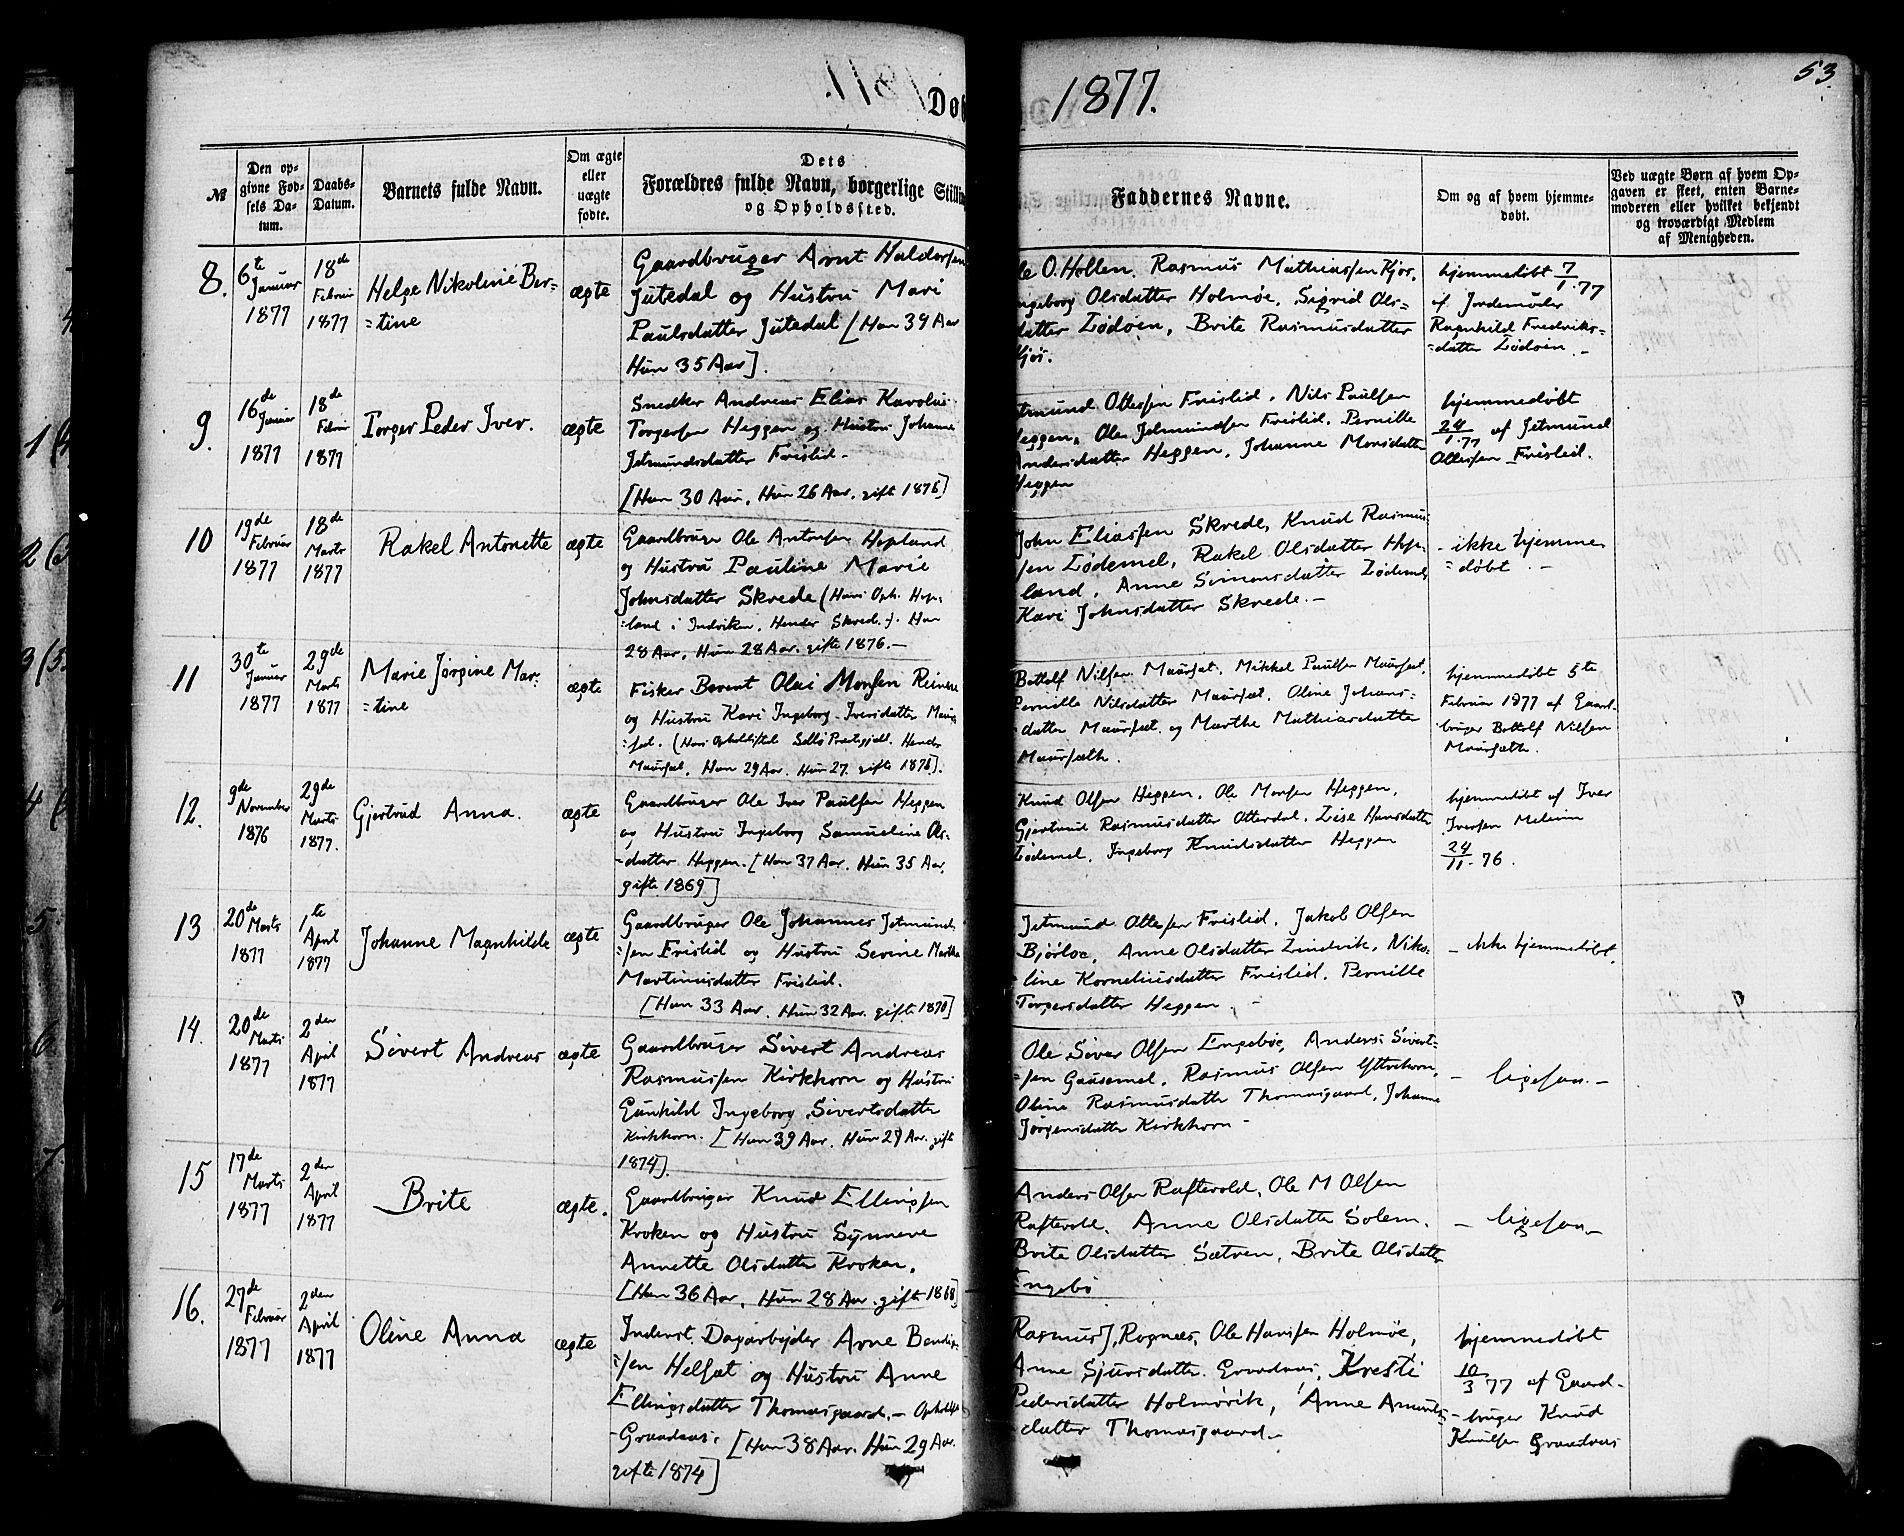 1877.
53.
Døb
№
Den opgivne Fødsels Datum.
Daabs-Datum.
Barnets fulde Navn.
Om ægte eller uægte fødte.
Dets Forældres fulde Navn, borgerlige Stilling og Opholdssted.
Faddernes Navne.
Om og af hvem hjemmedøbt.
Ved uægte Børn af hvem Opgaven er skeet, enten Barnemoderen eller hvilket bekjendt og troværdigt Medlem af Menigheden.
8.
6te Januar 1877
18de Februar 1877
Helge Nikoline Ber-
=tine
ægte
Gaardbruger Arnt Haldorsen
Jutedal og Hustru Mari
Paulsdatter Jutedal [Han 39 Aar
Hun 35 Aar].
O. Hollen. Rasmus Mathiassen Kjøs,
Ingeborg Olsdatter Holmøe, Sigrid Ols=
datter Lødøen, Brite Rasmusdatter
Kjøs.
hjemmedøbt 7/1 77
af Jordemoder
Ragnhild Fredriks=
=datter Lødøen. -
9.
16de Januar 1877
18de Februar 1877
Torger Peder Iver.
ægte
Snedker Andreas Elias Karolus
Torgersen Heggen og Hustru Johanne
Jetmundsdatter Frislid.
[Han 30 Aar, Hun 26 Aar. gift 1876]
Jetmund Ottessen Frislid, Nils Paulsen
Heggen, Ole Jetmundsen Frislid. Pernille
Andersdatter Heggen, Johanne Monsdatter
Heggen
hjemmedøbt
24/1 77 af Jetmund
Ottessen Frislid.
10
19de Februar 1877
18de Marts 1877
Rakel Antonette
ægte
Gaardbruger Ole Antonsen Hopland
og Hustru Pauline Marie
Johnsdatter Skrede (Hans Oph. Hop=
=land i Indviken, Hendes Skrede.). Han
28 Aar, Hun 28 Aar. gifte 1876.-
John Eliassen Skrede, Knud Rasmus
sen Lødemel, Rakel Olsdatter Hop=
land, Anne Simonsdatter Lødemel
Kari Johnsdatter Skrede.-
- ikke hjemme
=døbt. -
11
30te Januar 1877
29de Marts 1877
Marie Jørgine Mar=
=tine
ægte
Fisker Berent Olai Monsen
og Hustru Kari Ingeborg Iversdatter Maur
=sæt. (Hans Opholdssted Præstegjeld. Hendes
Maursæt, Han 29 Aar. Hun 27. gifte
Bottolf Nilsen Maursæt. Mikkel Paulsen Maursæt,
Pernille Nilsdatter Maursæt. Oline Johans=
datter Maursæt og Marthe Mathiasdatter
Maursæth.
hjemmedøbt 5te
Februar 1877 af Gaard
bruger Bottolf Nilsen
Maursæth.
12.
9de November 1876
29de Marts 1877.
Gjertrud Anna.
ægte
Gaardbruger Ole Iver Paulsen Heggen
og Hustru Ingeborg Samueline Ols-
=datter Heggen. [Han 37 Aar. Hun 35 Aar,
gifte 1869]
Knud Olsen Heggen, Ole Monsen Heggen,
Gjertrud Rasmusdatter Otterdal. Lise Hansdatter
Lødemel, Ingeborg Knudsdatter Heggen
hjemmedøbt af Iver
Iversen
24/11-76.
13
20de Marts 1877
1te April 1877
Johanne Magnhilde
ægte
Gaardbruger Ole Johannes Jetmund
=sen Frislid og Hustru Sevine Marthe
Martinusdatter Frislid.
[Han 33 Aar. Hun 32 Aar. gifte 1870]
Jetmund Ottesen Frislid, Jakob Olsen
Bjørloe, Anne Olsdatter Lindvik, Niko=
line Korneliusdatter Frislid, Pernille
Torgersdatter Heggen. -
- ikke hjemmedøbt.
14.
20de Marts 1877
2den April 1877
Sivert Andreas
ægte
Gaardbruger Sivert Andreas
Rasmussen Kirkhorn og Hustru
Gunhild Ingeborg Sivertsdatter
Kirkhorn. [Han 39 Aar. Hun 27 Aar. gift
1874].
Ole Siver Olsen Engebøe, Anders Sivert=
=sen Gausemel, Rasmus Olsen Yttrehorn,
Oline Rasmusdatter Thomasgaard, Johanne
Jørgensdatter Kirkhorn -
- ligesaa.-
15
17de Marts 1877
2den April 1877
Brite
ægte.
Gaardbruger Knud Ellingsen
Kroken og Hustru Synneve
Annette Olsdatter Kroken.
[Han 36 Aar, Hun 28 Aar. gifte 1868]
Anders Olsen Raftevold, Ole M Olsen
Raftevold. Anne Olsdatter Solem,
Brite Olsdatter Sætren, Brite Olsdatter
Engebø
- ligesaa -
16.
27de Februar 1877
2den April 1877
Oline Anna
ægte
Inderst, Dagarbejder Arne Bendix
=sen Helset og Hustru Anne
Ellingsdatter Thomasgaard. - Opholdst
- Graadnæs, [Han 38 Aar. Hun 29 Aar.
gifte 1874]
Rasmus J. Rognæs, Ole Hansen Holmøe,
Anne Sjursdatter. Graadnæs, Kresti
Pedersdatter Holmørik, Anne Amunds
-datter Thomasgaard.-
hjemmedøbt
10/3 77 af Gaard-
-bruger Knud
Knudsen Graadnæs